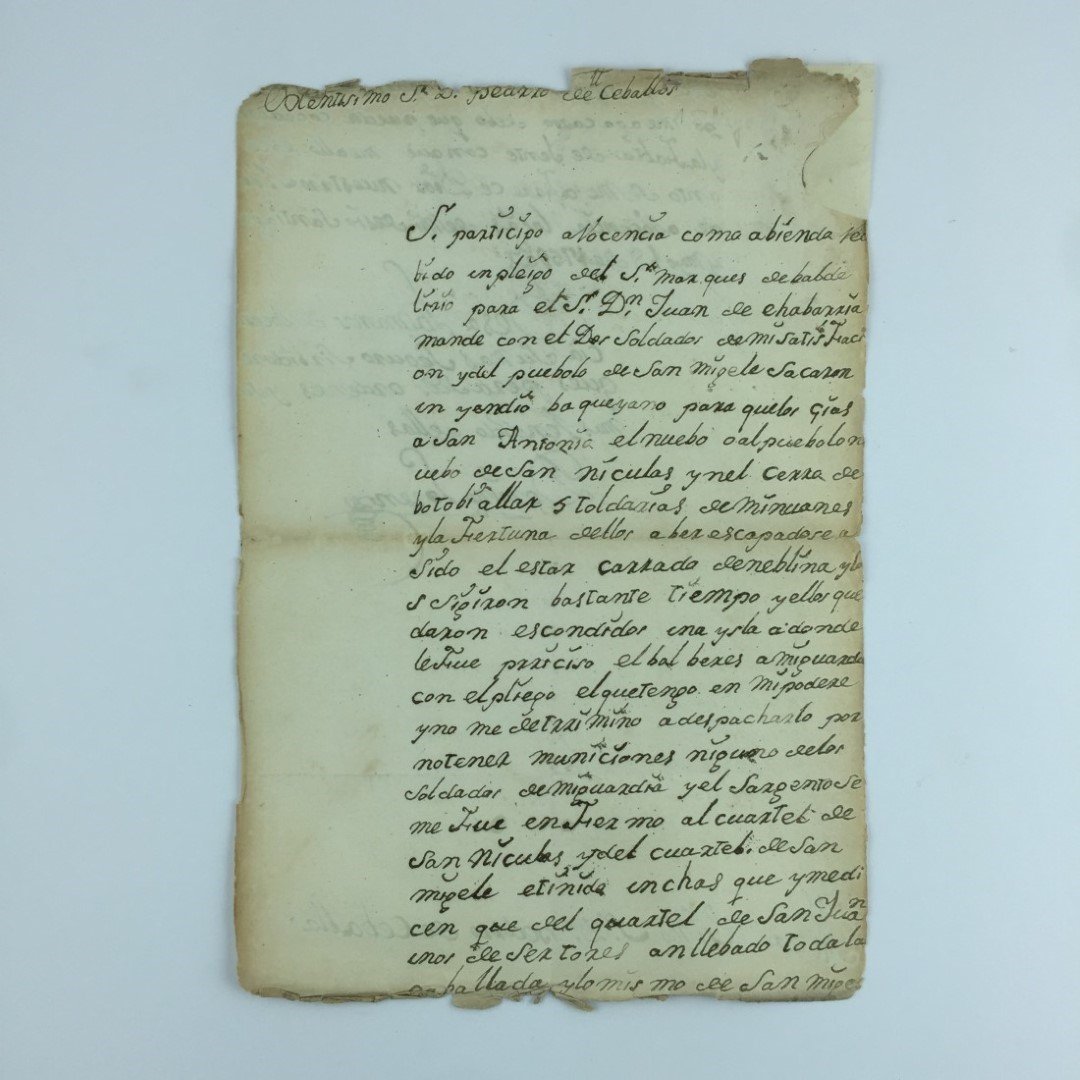 Exlentisimo Sr. D. Pedrro de Ceballos
Sr. participo a Vocencia como abienda rec
bido un pleigo del Sr. Marques de balde
lirio para el Sr. Dn. Juan de Chabarria
mande con el Dos Soldados de mi satisfaci
on y del puebolo de San Migele Sacaron
un yendio baqueyano para quelos gias
a San Antonia el nuebo o al puebolo n
uebo de San Niculas y nel cerra de
botobi allar 5 toldarias de Minuanes
y la Fertuna dellos aber escapadose a
Sido el estar carrado de neblina y lo
s Sigiron bastante tiempo y ellos que
daron escondidos una ysla a donde
le Fue prriciso el bolberes a mi guardia
con el pliego el que tengo en mi podere
y no me detrrimino a despacharlo por
notener municiones niguno de los
Soldados de mi guardia y el Sargento Se
me Fue en Fermo al cuartel de
San Niculas y del cuartel de San
Migele etinida unchas que y me di
cen que del quartel de San Juan
unos desertores anllebado toda la
caballada y lo mismo de San Migel